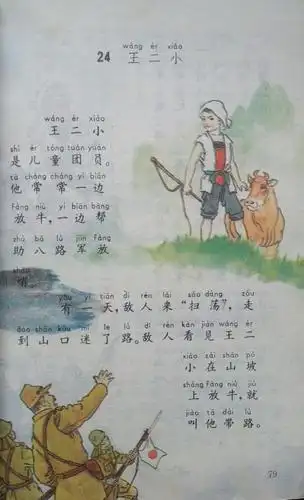 wáng èr xiǎo
24 王二小
wáng èr xiǎo
王二小
shì ér tóng tuán yuán
是儿童团员。
tā cháng cháng yì biān
他常常一边
fàng niú yì biān bāng
放牛,一边帮
zhù bā lù jūn fàng
助八路军放
shào
哨。
yǒu yì tiān dí rén lái sǎo dàng zǒu
有一天,敌人来“扫荡”,走
dào shān kǒu mí le lù dí rén kàn jiàn wáng èr
到山口迷了路。敌人看见王二
xiǎo zài shān pō
小在山坡
shàng fàng niú jiù
上放牛,就
jiào tā dài lù
叫他带路。
79